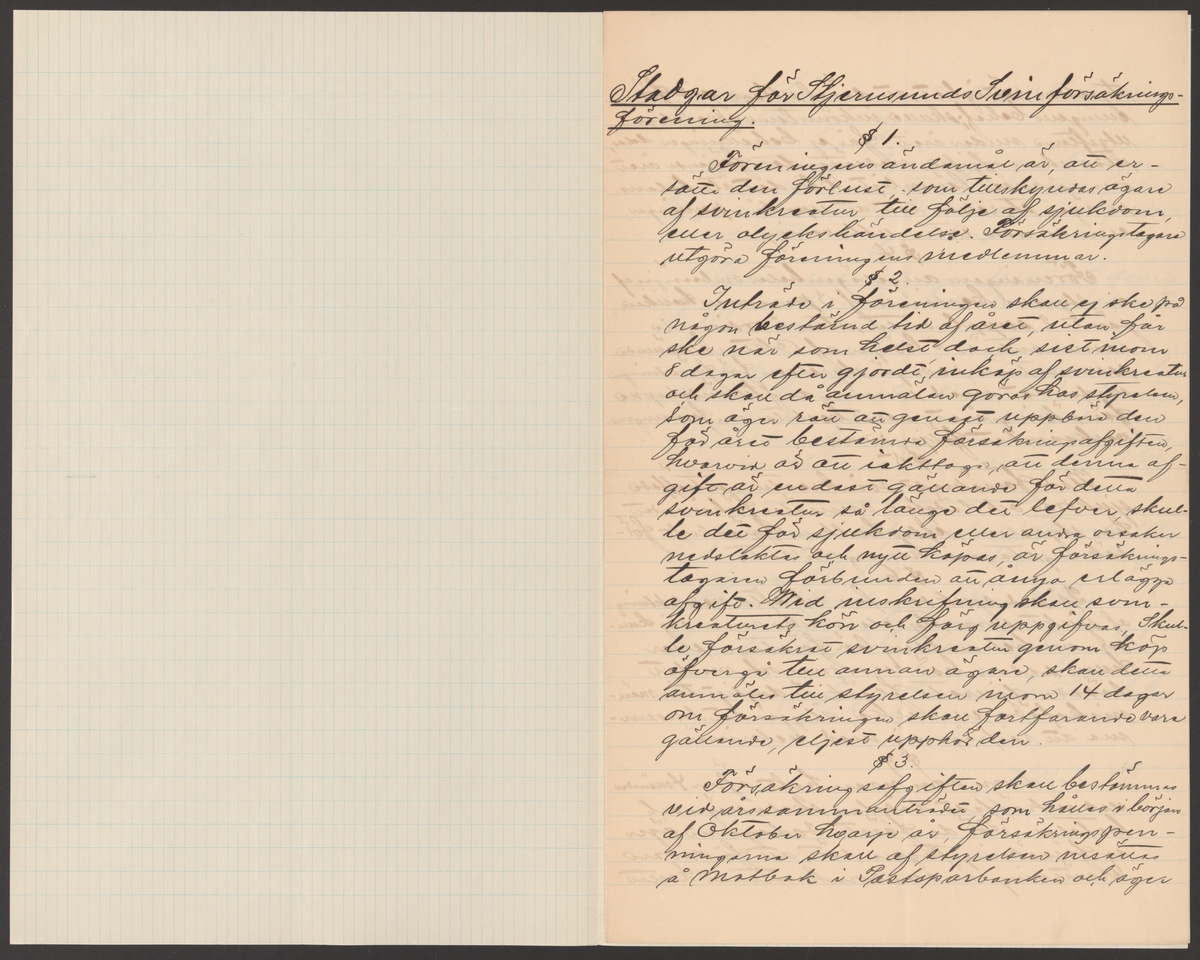 Stadgar för Stjernsunds Svinförsäkrings-
förening.
§ 1.
Föreningens ändamål är, att er-
sätta den förlust, som tillskyndas ägare
af svinkreatur till följe af sjukdom,
eller olyckshändelse. Försäkringstagare
utgöra föreningens medlemmar.
§ 2.
Inträde i föreningen skall ej ske på
någon bestämd tid af året, utan får
ske när som helst dock sist inom
8 dagar efter gjordt inköp af svinkreatur
och skall då anmälan göras hos styrelsen,
som äger rätt att genast uppbära den
för året bestämda försäkringsafgiften,
hvarvid är att iakttaga, att denna af-
gift är endast gällande för detta
svinkreatur så länge det lefver, skul-
le det för sjukdom eller andra orsaker
nedslaktas och nytt köpas, är försäkrings-
tagaren förbunden att ånyo erlägga
afgift. Vid inskrifning skall svin-
kreaturets kön och färg uppgifvas. Skul-
le försäkrat svinkreatur genom köp
öfvergå till annan ägare, skall detta
anmälas till styrelsen inom 14 dagar
om försäkringen skall fortfarande vara
gällande, eljest upphör den.
§ 3.
Försäkringsafgiften skall bestämmas
vid årssammanträdet, som hålles i början
af Oktober hvarje år, försäkringspen-
ningarna skall af styrelsen insättas
å Motbok i Postsparbanken och äger